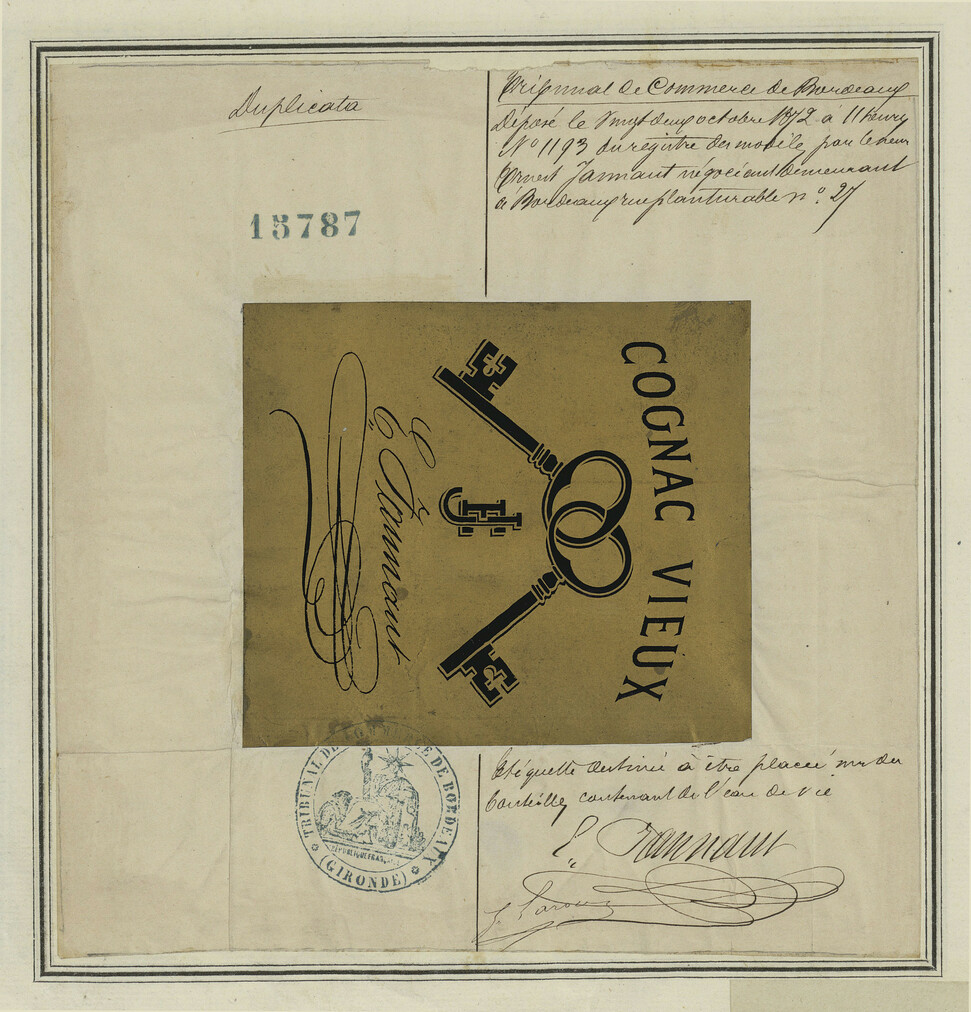 Duplicata
15787
Tribunal de Commerce de Bordeaux
Déposé le vingt deux octobre 1872 à 11 heures
No 1193 du registre des modèles par le sieur
Ernest Jannaut négociant demeurant
à Bordeaux rue planturable no. 27
COGNAC VIEUX
JE
E. Jannaut
TRIBUNAL DE COMMERCE DE BORDEAUX
RÉPUBLIQUE FRANÇ
(GIRONDE)
Etiquette destinée à être placée sur des
bouteilles contenant de l'eau de vie
E. Jannaut